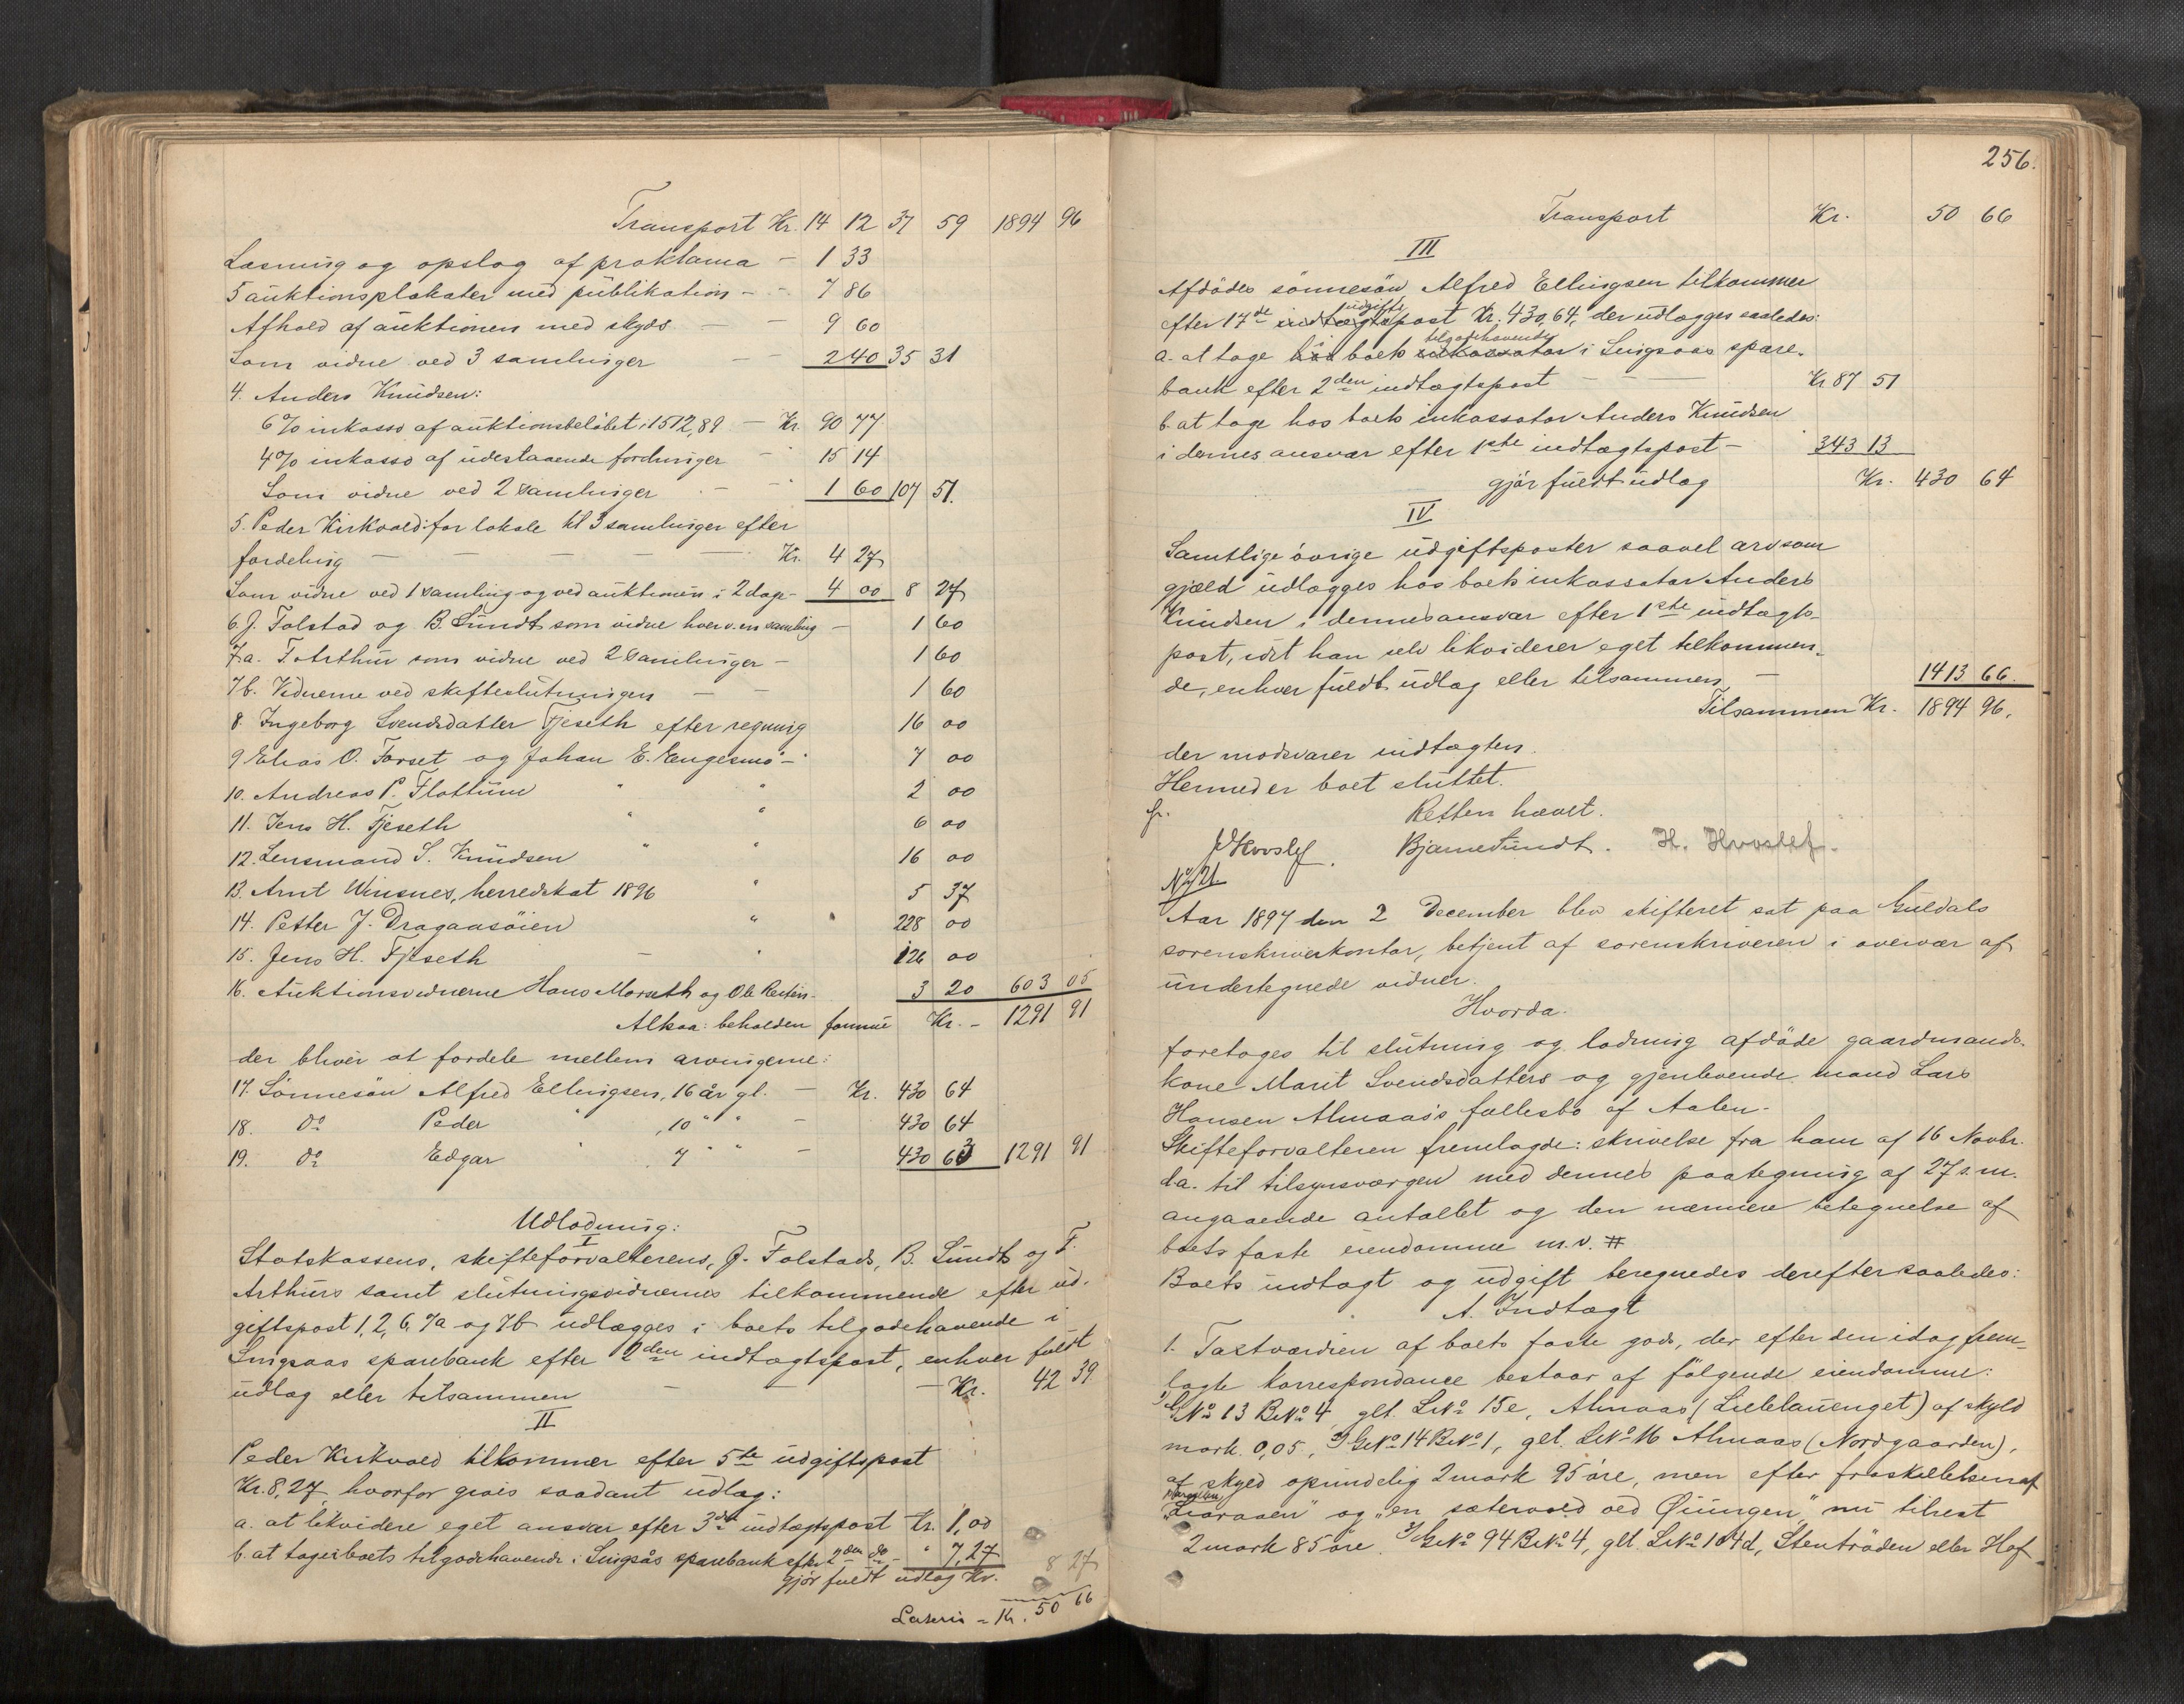 Transport Kr. 14 12 37 59 1894 96
Læsning og opslag af proklama - 1 33
5 auktionsplakater med publikation - - 7 86
Afhold af auktionen med skyds - - 9 60
Som vidne ved 3 samlinger - - 2 40 35 31
4. Anders Knudsen:
6% inkasso af auktionsbeløbet: 1512,89 - Kr. 90 77
4% inkasso af udestaaende fordringer - 15 14
Som vidne ved 2 samlinger - 1 60 107 51.
5. Peder Kirkvold: for lokale til 3 samlinger efter
fordeling - - - - - Kr. 4 27
Som vidne ved 1 samling og ved auktionen i 2 dage - 4 00 8 27
6. J. Folstad og B. Sundt som vidne hver v. en samling - 1 60
7a. F. Arthur som vidne ved 2 samlinger - 1 60
7b. Vidnerne ved skifteslutningen - - 1 60
8. Ingeborg Svendsdatter Fjeseth efter regning 16 00
9. Elias O. Forset og Johan E. Engesmo - " 7 00
10. Andreas P. Flottum " " 2 00
11. Jens H. Fjeseth " " 6 00
12. Lensmand S. Knudsen " " 16 00
13. Arnt Winsnes, herredskat 1896 " 5 37
14. Petter J. Dragaasøien " " 228 00
15. Jens H. Fjeseth - " 126 00
16. Auktionsvidnerne Hans Morseth og Ole - 3 20 603 05
Altsaa: beholden formue Kr. - 1291 91
der bliver at fordele mellem arvingerne:
17. Sønnesøn Alfred Ellingsen, 16 år gl. - Kr. 430 64
18. Do Peder " , 10 " " - 430 64
19. Do Edgar " , 7 " " - 430 63 1291 91
Udlodning:
I
Statskassens, skifteforvalterens, J. Folstads, B. Sundts og F.
Arthurs samt slutningsvidnernes tilkommende efter ud-
giftspost 1, 2, 6, 7a og 7b udlægges i boets tilgodehavende i
Singsaas sparebank efter 2den indtægtspost, enhver fuldt
udlæg eller tilsammen - - - Kr. 42 39
II
Peder Kirkvold tilkommer efter 5te udgiftspost
Kr. 8,27, hvorfor gives saadant udlæg:
a. at likvidere eget ansvar efter 3die indtægtspost Kr. 1,00
b. at tage i boets tilgodehavende i Singsås sparebank efter 2den do - " 7,27
gjør fuldt udlæg Kr. 8 27
Lateris - Kr. 50 66
256.
Transport Kr. 50 66
III
Afdødes sønnesøn Alfred Ellingsen tilkommer
udgifts
efter 17de indtægtspost Kr. 430,64, der udlægges saaledes:
tilgodehavende
a. at tage hos boets inkassator i Singsaas spare-
bank efter 2den indtægtspost - - Kr 87 51
b. at tage hos boets inkassator Anders Knudsen
i dennes ansvar efter 1ste indtægtspost - " 343 13
gjør fuldt udlæg Kr. 430 64
IV
Samtlige øvrige udgiftsposter saavel arv som
gjæld udlægges hos boets inkassator Anders
Knudsen i dennes ansvar efter 1ste indtægts-
post, idet han selv likviderer eget tilkommen-
de, enhver fuldt udlæg eller tilsammen - 1413 66.
Tilsammen Kr. 1894 96.
der modsvarer indtægten.
Hermed er boet sluttet.
Retten hævet.
Hvoslef. Bjarne Sundt. H. Hvoslef.
No 21.
Aar 1897 den 2 December blev skifteret sat paa Guldals
sorenskriverkontor, betjent af sorenskriveren i overvær af
undertegnede vidner.
Hvorda:
foretoges til slutning og lodning afdøde gaardmands-
kone Marit Svendsdatters og gjenlevende mand Lars
Hansen Almaas's fællesbo af Aalen.
Skifteforvalteren fremlagde: skrivelse fra ham af 16 Novbr.
d.a. til tilsynsværgen med dennes paategning af 27 s.m.
angaaende antallet og den nærmere betegnelse af
boets faste eiendomme m.v. #
Boets indtægt og udgift beregnedes derefter saaledes:
A. Indtægt
1. Taxtværdien af boets faste gods, der efter den idag frem-
lagte korrespondance bestaar af følgende eiendomme:
1) GNo 13 BNo 4, glt. LNo 15e, Almaas (Lillelauenget) af skyld
mark 0,05, 2) GNo 14 BNo 1, glt. LNo 16 Almaas (Nordgaarden),
af skyld oprindelig 2 mark 95 øre, men efter fraskillelsen af
og "en sætervold ved Øiungen", nu tilrest
2 mark 85 øre. 3) GNo 94 BNo 4, glt LNo 104d, Stentrøden eller Hof